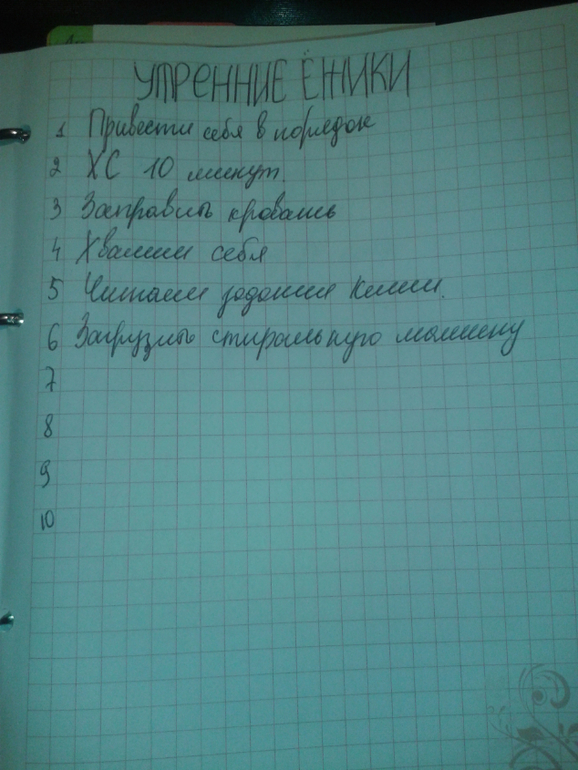 УТРЕННИЕ ЁЖИКИ
1 Привести себя в порядок
2 ХС 10 минут.
3 Заправить кровать
4 Хвалим себя
5 Читаем задания Келли.
6 Загрузить стиральную машину
7
8
9
10